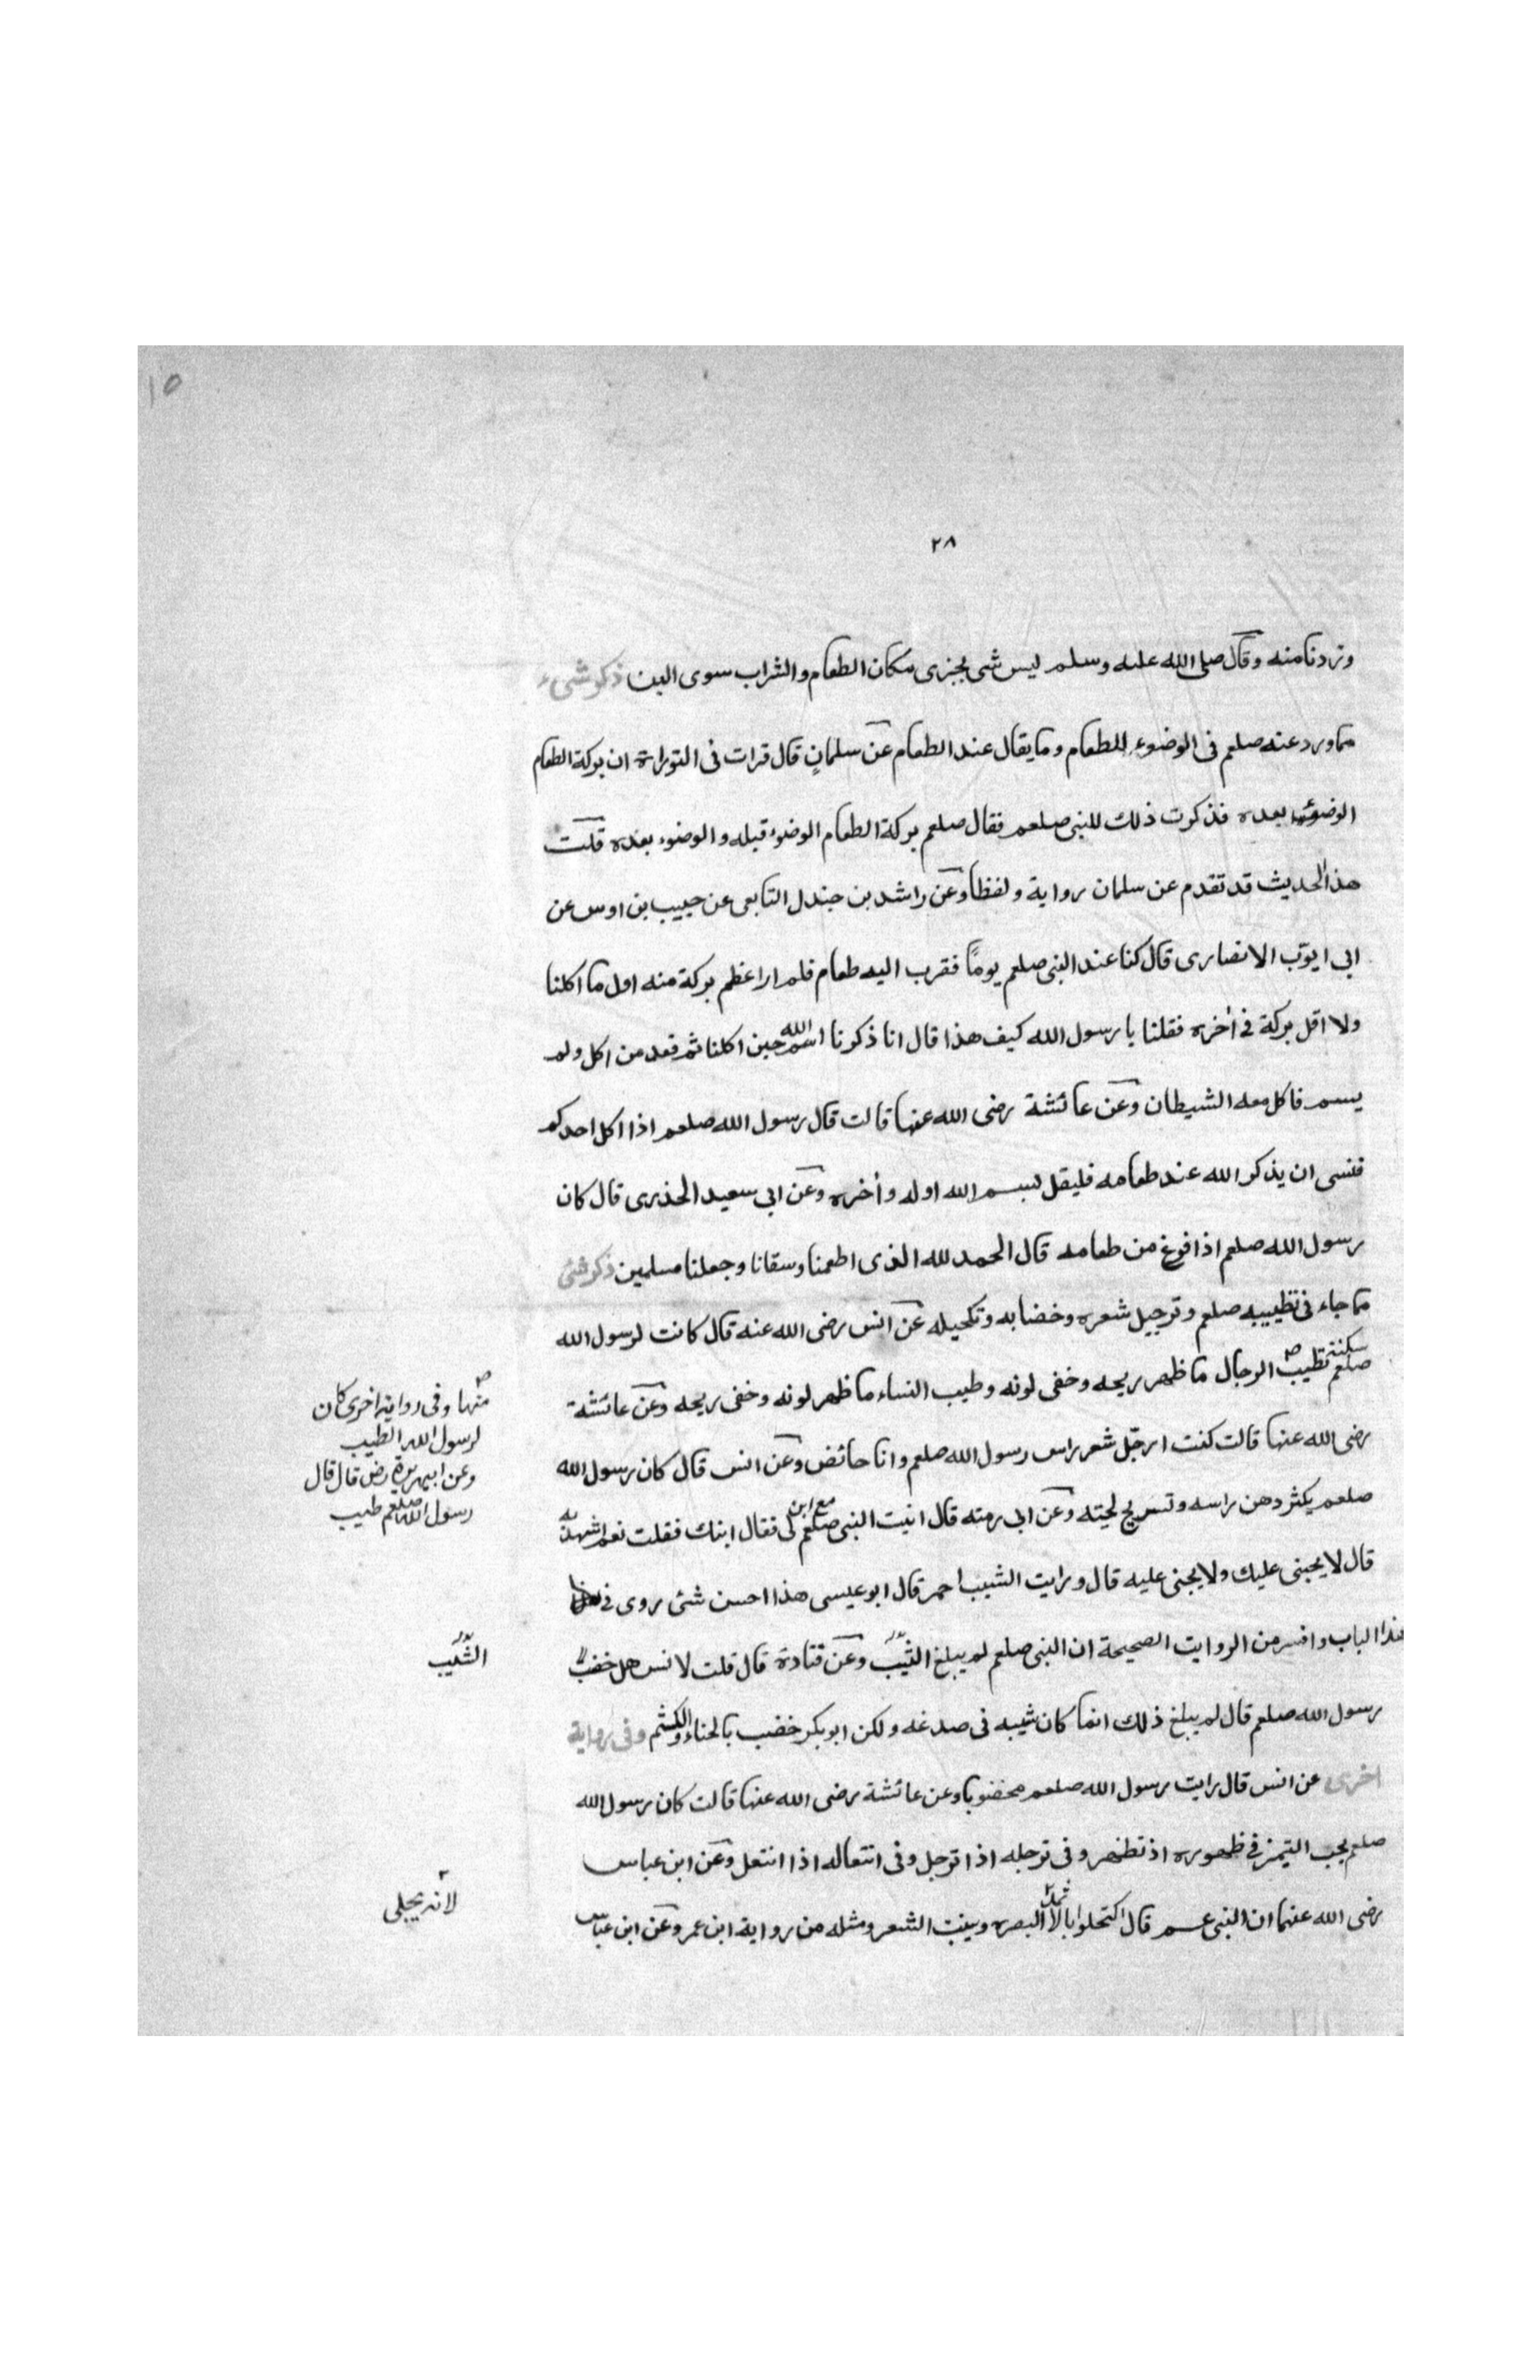 ١٥
٢٨
وزدنا منه وقال صلى الله عليه وسلم ليس شى يجزى مكان الطعام والشراب سوى البن ذكر شىء
مما ورد عنه صلعم فى الوضوء للطعام وما يقال عند الطعام عن سلمان قال قرات فى التوراة ان بركة الطعام
الوضوء بعده فذكرت ذلك للنبى صلعم فقال صلعم بركة الطعام الوضوء قبله والوضوء بعده قلت
هذا الحديث قد تقدم عن سلمان رواية ولفظا وعن راشد بن جندل التابعى عن حبيب بن اوس عن
ابى ايوب الانصارى قال كنا عند النبى صلعم يومًا فقرب اليه طعام فلم ار اعظم بركة منه اول ما اكلنا
ولا اقل بركة فى أخره فقلنا يا رسول الله كيف هذا قال انا ذكرنا اسم الله حين اكلنا ثم قعد من اكل ولم
يسم فاكل معه الشيطان وعن عائشة رضى الله عنها قالت قال رسول الله صلعم اذا اكل احدكم
فنسى ان يذكر الله عند طعامه فليقل بسم الله اوله وأخره وعن ابى سعيد الخذرى قال كان
رسول الله صلعم اذا فرغ من طعامه قال الحمد لله الذى اطعمنا وسقانا وجعلنا مسلمين ذكر شئ
مما جاء فى تطييبه صلعم وترجيل شعره وخضابه وتكحيله عن انس رضى الله عنه قال كانت لرسول الله
صلعم سكنة تطيب الرجال ما ظهر ريحه وخفى لونه وطيب النساء ما ظهر لونه وخفى ريحه وعن عائشة
منها وفى رواية اخرى كان
لرسول الله الطيب
وعن ابيهريرة رض قال قال
رسول الله صلعم طيب
رضى الله عنها قالت كنت ارجّل شعر راس رسول الله صلعم وانا حائض وعن انس قال كان رسول الله
صلعم يكثر دهن راسه وتسريح لحيته وعن ابى رمته قال اتيت النبى صلعم مع ابن لى فقال ابنك فقلت نعم اشهد به
قال لا يجنى عليك ولا يجنى عليه قال ورايت الشيب احمر قال ابو عيسى هذا احسن شئ روى فى
هذا الباب وافسر من الروايت الصحيحة ان النبى صلعم لم يبلغ الشيب وعن قتادة قال قلت لانس هل خضب
الشيب
رسول الله صلعم قال لم يبلغ ذلك انما كان شيبه فى صدغه ولكن ابو بكر خضب بالحناء والكتم وفى رواية
اخرى عن انس قال رايت رسول الله صلعم مخضوبا وعن عائشة رضى الله عنها قالت كان رسول الله
صلعم يحب التيمن فى طهوره اذ تطهر وفى ترجله اذا ترجل وفى انتعاله اذا انتعل وعن ابن عباس
رضى الله عنهما ان النبى عم قال اكتحلوا بالاثمد البصر وينبت الشعر ومثله من رواية ابن عمر وعن ابن عباس
لانه يجلى